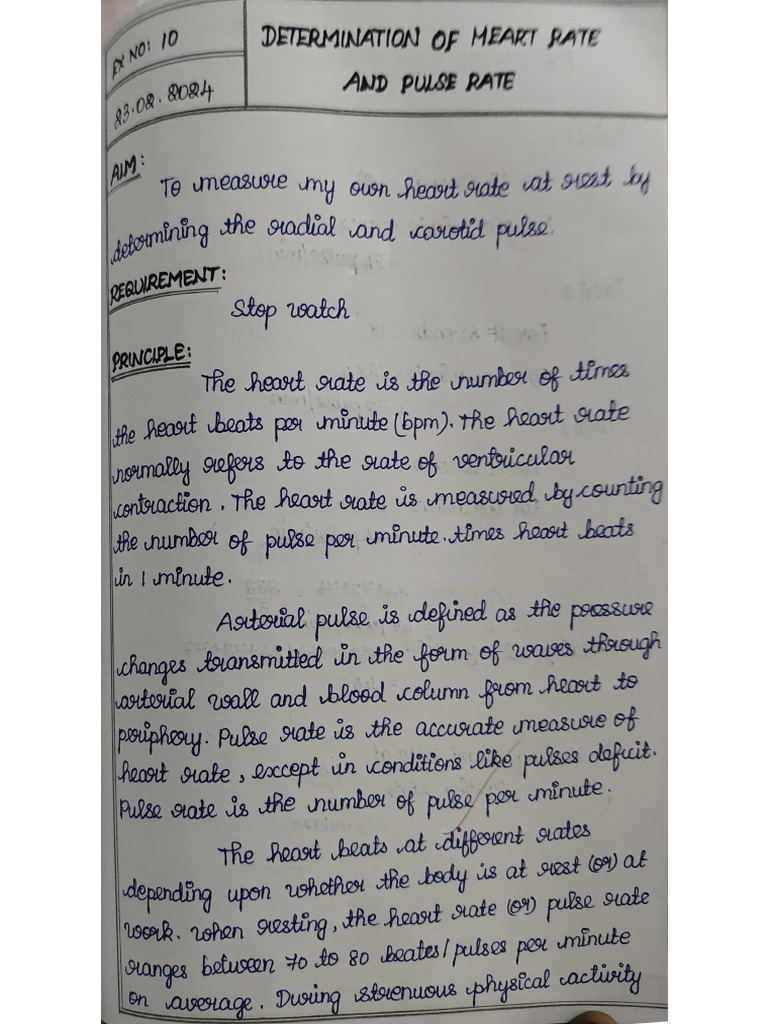 EX NO: 10
23.02.2024
DETERMINATION OF HEART RATE
AND PULSE RATE
AIM:
To measure my own heart rate at rest by
determining the radial and carotid pulse.
REQUIREMENT:
Stop watch
PRINCIPLE:
The heart rate is the number of times
the heart beats per minute (bpm). The heart rate
normally refers to the rate of ventricular
contraction. The heart rate is measured by counting
the number of pulse per minute. times heart beats
in 1 minute.
Arterial pulse is defined as the pressure
changes transmitted in the form of waves through
arterial wall and blood column from heart to
periphery. Pulse rate is the accurate measure of
heart rate, except in conditions like pulses deficit.
Pulse rate is the number of pulse per minute.
The heart beats at different rates
depending upon whether the body is at rest (or) at
work. when resting, the heart rate (or) pulse rate
ranges between 70 to 80 beates/pulses per minute
on average. During strenuous physical activity